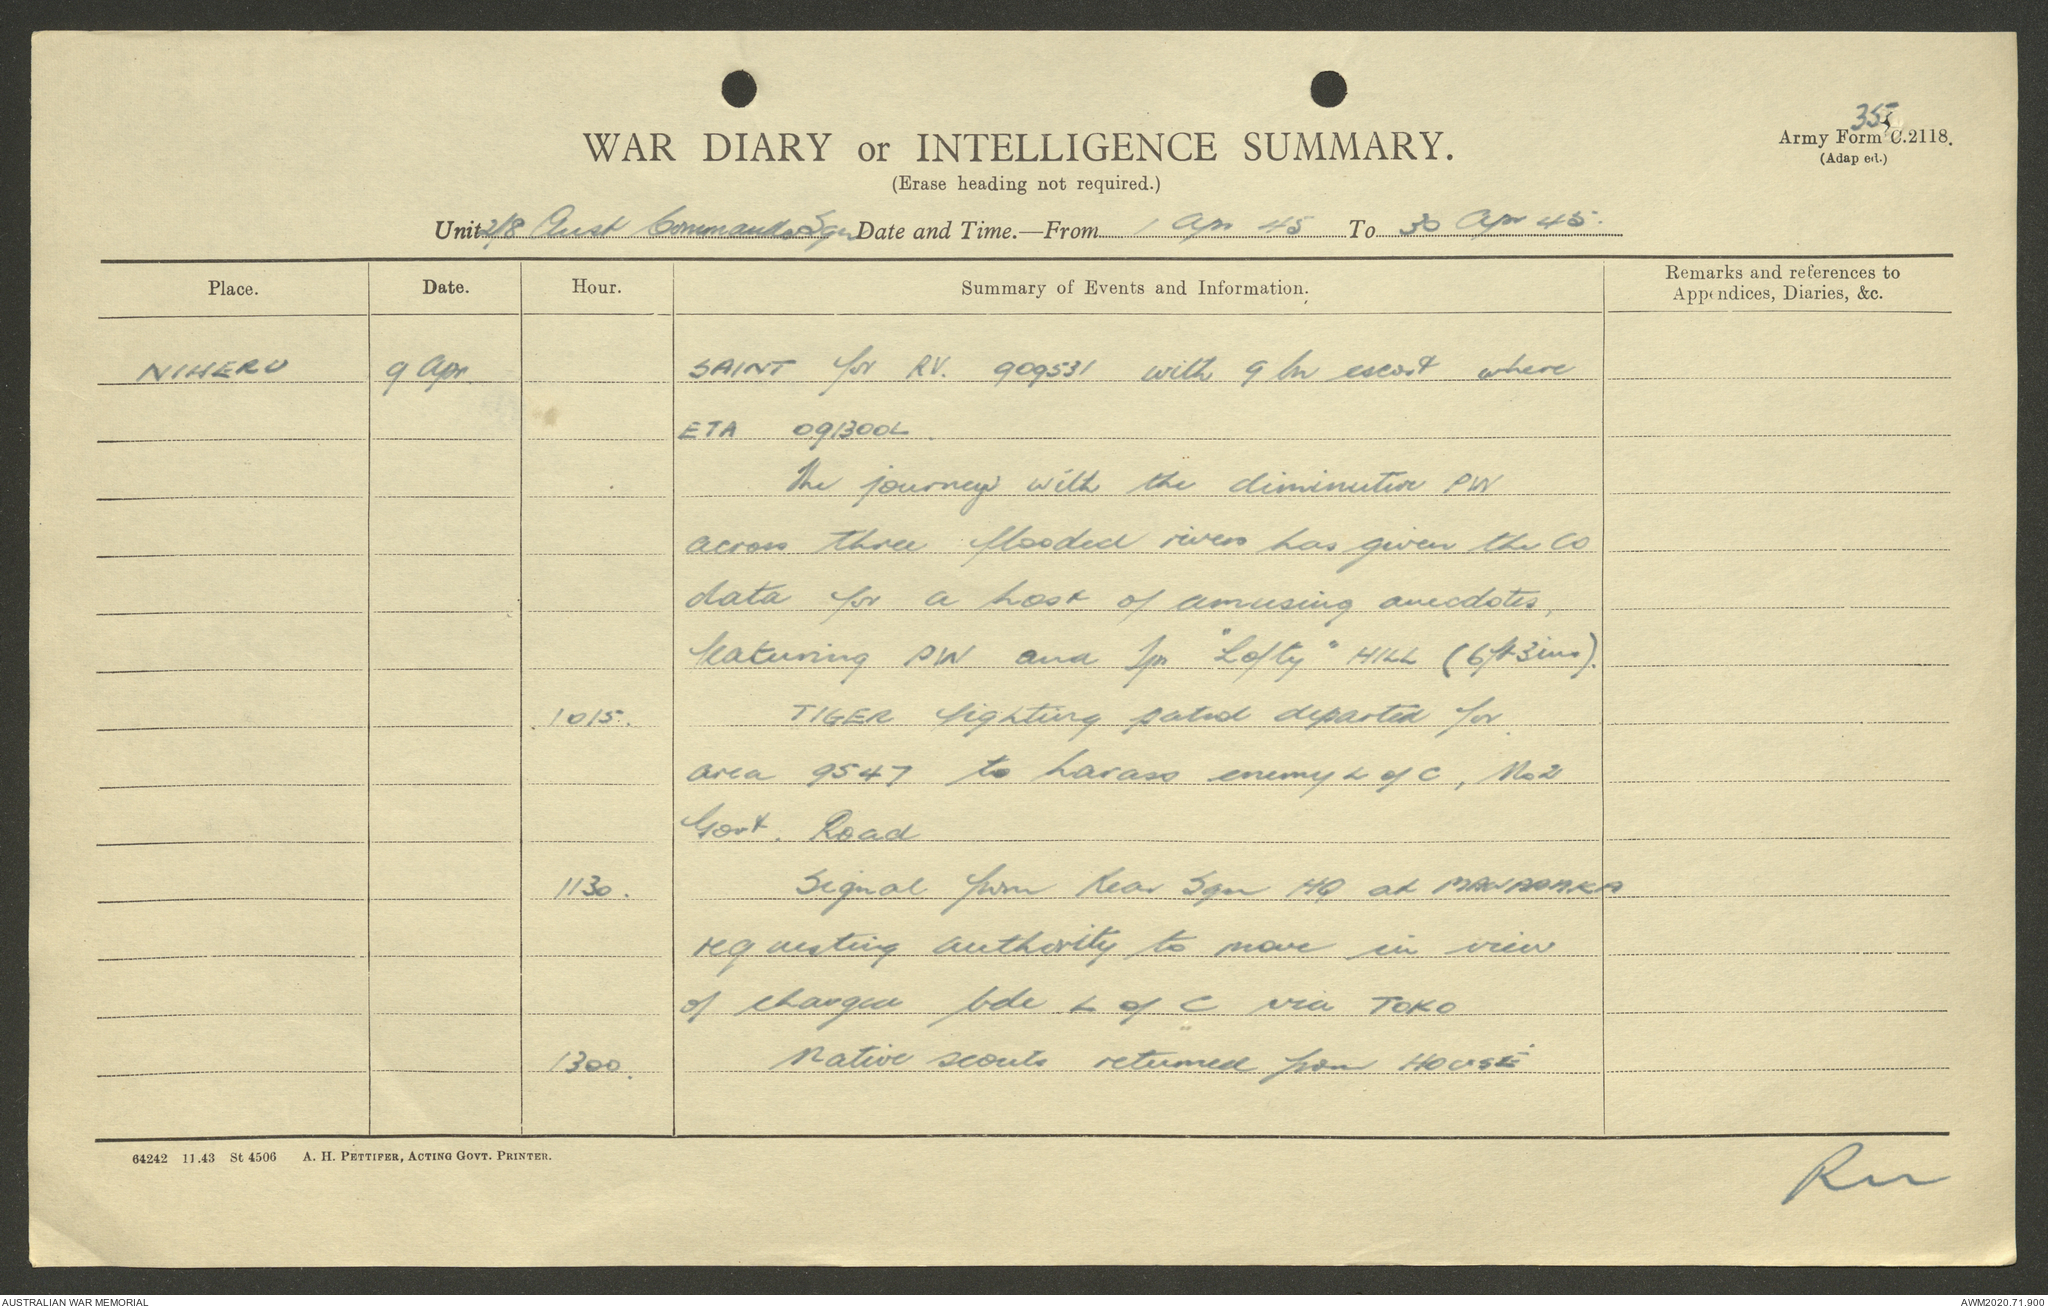 35
WAR DIARY or INTELLIGENCE SUMMARY.
Army Form C.2118.
(Adapted.)
(Erase heading not required.)
Unit 2/8 Aust Commando Sqn Date and Time.—From 1 Apr 45 To 30 Apr 45.
Place. Date. Hour. Summary of Events and Information. Remarks and references to
Appendices, Diaries, &c.
NIHERU 9 Apr. SAINT for RV. 909531 with 9 Bn escort where
ETA 091300L.
The journey with the diminutive PW
across three flooded rivers has given the CO
data for a host of amusing anecdotes,
featuring PW and Tpr "Lofty" HILL (6ft 3ins).
1015. TIGER fighting patrol departed for
area 9547 to harass enemy L of C, No 2
Govt. Road
1130. Signal from Rear Sqn HQ at MAWARAKA
requesting authority to move in view
of changed bde L of C via TOKO
1300. Native scouts returned from HOUSE
64242 11.43 St 4506 A. H. PETTIFER, ACTING GOVT. PRINTER.
AUSTRALIAN WAR MEMORIAL AWM2020.71.900